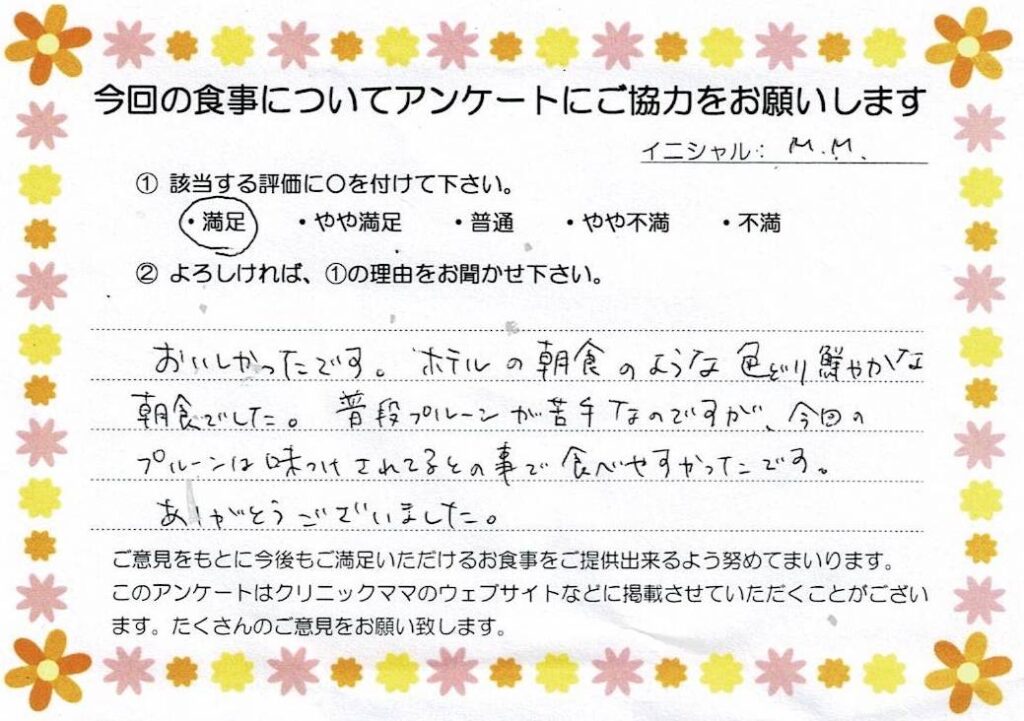 今回の食事についてアンケートにご協力をお願いします
イニシャル： M.M.
① 該当する評価に〇を付けて下さい。
・満足 ・やや満足 ・普通 ・やや不満 ・不満
② よろしければ、①の理由をお聞かせ下さい。
おいしかったです。ホテルの朝食のような色どり鮮やかな
朝食でした。普段プルーンが苦手なのですが、今回の
プルーンは味つけされてるとの事で食べやすかったです。
ありがとうございました。
ご意見をもとに今後もご満足いただけるお食事をご提供出来るよう努めてまいります。
このアンケートはクリニックママのウェブサイトなどに掲載させていただくことがござい
ます。たくさんのご意見をお願い致します。